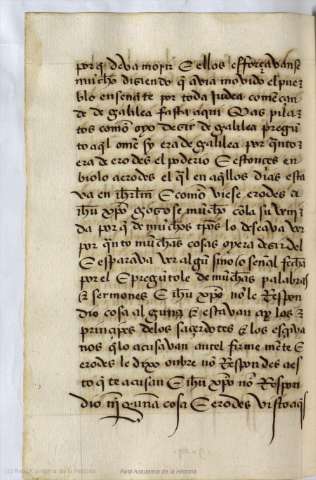 por q̃ deva morir E ellos efforçavanse
mucho disiendo q̃ avia movido el pue
blo enseñãte por toda Judea comẽçan
de de galilea fasta aqui Mas pila
tos como oyo desir de galilea pregũ
to aql̃ ome sy era de galilea por q̃nto
era de erodes el poderio E estonces en
biolo aerodes el q̃l en aq̃llos dias esta
va en ihrl̃m E como viese erodes a
ihũ xp̃o gozose mucho cõ la su vini
da por q̃ de muchos tp̃os lo deseava ver
por q̃nto muchas cosas oyera desir del
E esparava ver algũ sino o señal fecha
por el E pregũtole de muchas palabras
& sermones E ihũ xp̃o no le Respon
dio cosa alguna & estavan ay los
principes delos sacerdotes & los escriva
nos q̃ lo acusavan ant el firme mẽte E
erodes le dixo onbre no Respondes aes
to q̃ te acusan E ihũ xp̃o no Respon
dio nĩguna cosa E erodes visto aq̃s
Real Academia de la Historia